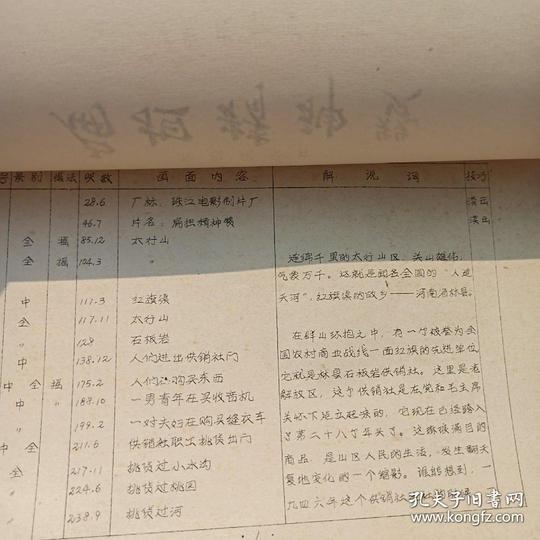 号 景别 摄法 呎数 画面内容 解说词 技巧
28.6 厂标：珠江电影制片厂 淡出
46.7 片名：扁担精神赞 淡出
全 摇 85.12 太行山
全 摇 104.3 〃 连绵千里的太行山区，关山雄伟，
气象万千。这就是闻名全国的“人造
天河”，红旗渠的故乡——河南省林县。
中 111.3 红旗渠
全 117.11 太行山
〃 128 石板岩 在群山环抱之中，有一个被誉为全
中 138.12 人们进出供销社门 国农村商业战线一面红旗的先进单位
中全 摇 175.2 人们在购买东西 它就是林县石板岩供销社。这里是老
中 〃 189.10 一男青年在买收音机 解放区，这个供销社是在党和毛主席
〃 199.2 一对夫妇在购买缝衣车 关怀下建立起来的，它现在已经跨入
中全 211.6 供销社职工挑货出门 了第二十八个年头了。这琳琅满目的
全 217.11 挑货过小水沟 商品，是山区人民的生活，发生翻天
〃 224.6 挑货过桃园 复地变化的一个缩影。谁能想到，一
〃 238.9 挑货过河 九四六年这个供销社
孔夫子旧书网
www.kongfz.com